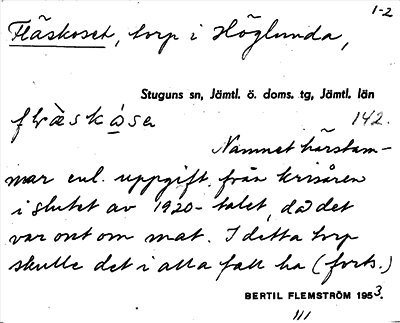 1-2
Fläskoset, torp i Höglunda,
Stuguns sn, Jämtl. ö. doms. tg, Jämtl. län
142.
Namnet härstam-
mar enl. uppgift från krisåren
i slutet av 1920-talet, då det
var ont om mat. I detta torp
skulle det i alla fall ha (forts.)
BERTIL FLEMSTRÖM 1953.
III